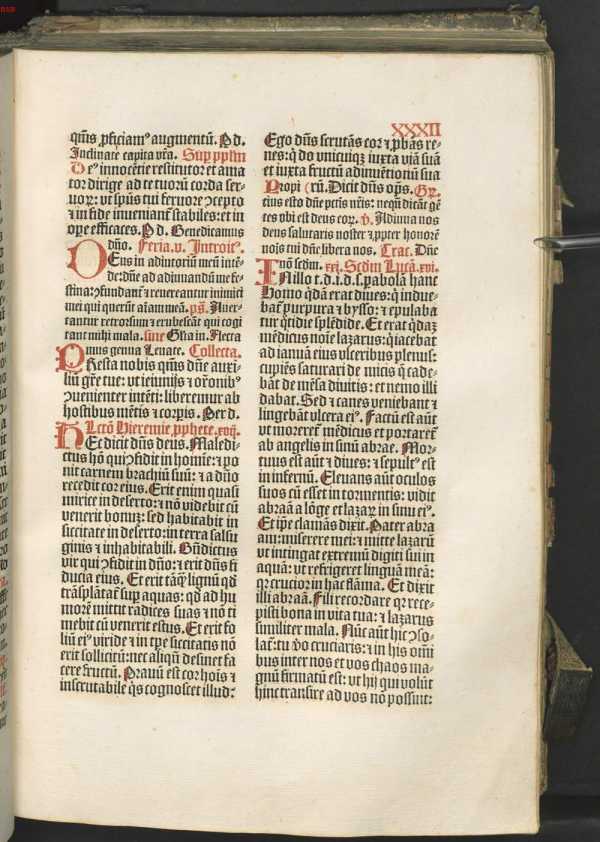 XXXII
qm̄s ꝓficiamꝰ augmentū. P d.
Inclinate capita vr̄a. Sup ppłm
Dꝰ innocētie restitutor et ama
tor dirige ad te tuoꝝ corda ser⸗
uoꝝ: vt sp̄us tui feruore ꝯcepto
⁊ in fide inueniant̄ stabiles: et in
oꝑe efficaces. P d. Benedicamus
dn̄o. Feria. v. Introitꝰ.
DEus in adiutoriū meū intē⸗
de: dn̄e ad adiuuandū me fe⸗
stina: ꝯfundant̄ ⁊ reuereantur inimici
mei qui querūt aīam meā. ps̄. Auer⸗
tantur retrorsum ⁊ erubescāt qui cogi
tant mihi mala. sine Gl̄ia in. Flecta
mus genua Leuate. Collecta.
PResta nobis qm̄s dn̄e auxi⸗
liū gr̄e tue: vt ieiunijs ⁊ or̄onibꝰ
ꝯuenienter intēti: liberemur ab
hostibus mētis ⁊ corꝑis. Per d.
Lctō Hieremie. ꝓphete. xvij.
HEc dicit dn̄s deus. Maledi⸗
ctus hō qui ꝯfidit in homīe: ⁊ po
nit carnem brachiū suū: ⁊ a dn̄o
recedit cor eius. Erit enim quasi
mirice in deserto: ⁊ nō videbit cū
venerit bonuꝫ: sed habitabit in
siccitate in deserto: in terra salsu
ginis ⁊ inhabitabili. Bn̄dictus
vir qui ꝯfidit in dn̄o: ⁊ erit dn̄s fi
ducia eius. Et erit tāqͣ lignū qd̄
trāsplātat̄ suꝑ aquas: qd̄ ad hu
morē mittit radices suas ⁊ nō ti
mebit cū venerit estus. Et erit fo
liū eiꝰ viride ⁊ in tꝑe siccitatis nō
erit sollicitū: nec aliqn̄ desinet fa
cere fructū. Prauū est cor hoīs ⁊
inscrutabile q̇s cognoscet illud:
Ego dn̄s scrutās cor ⁊ ꝓbās re⸗
nes: q̇ do vnicuiqꝫ iuxta viā suā
et iuxta fructū adinuētionū sua
Propi (rū. Dicit dn̄s oīps. Gr̄.
cius esto dn̄e pctīs nr̄is: nequn̄ dicāt gē
tes vbi est deus eoꝝ. ℣. Adiuua nos
deus salutaris noster ⁊ ꝓpter honorē
noīs tui dn̄e libera nos. Trac. Dn̄e
nō scdm. xxj. Scdm Lucā. xvi.
INillo t. d. i. d. s. ꝑabolā hanc
Homo qdā erat diues: q̇ indue⸗
bat̄ purpura ⁊ bysso: ⁊ epulaba
tur qͦtidie splēdide. Et erat qͦdaꝫ
mēdicus noīe lazarus: q̇ iacebat
ad ianuā eius vlceribus plenus:
cupiēs saturari de micis q̄ cade⸗
bāt de mēsa diuitis: et nemo illi
dabat. Sed ⁊ canes veniebant ⁊
lingebāt vlcera eiꝰ. Factū est aūt
vt morerer̄ mēdicus et portaret̄
ab angelis in sinū abrae. Mor⸗
tuus est aūt ⁊ diues: ⁊ sepultꝰ est
in infernū. Eleuans aūt oculos
suos cū esset in tormentis: vidit
abraā a lōge et lazaꝝ in sinu eiꝰ.
Et ip̄e clamās dixit. Pater abra
am: miserere mei: ⁊ mitte lazarū
vt intingat extremū digiti sui in
aquā: vt refrigeret linguā meā:
qꝛ crucior in hac flāma. Et dixit
illi abraā. Fili recordare qꝛ rece⸗
pisti bona in vita tua: ⁊ lazarus
similiter mala. Nūc aūt hic ꝯso⸗
lat̄: tu v̄o cruciaris: ⁊ in his om̄i
bus inter nos et vos chaos ma⸗
gnū firmatū est: vt hij qui volūt
hinc transire ad vos nō possint: